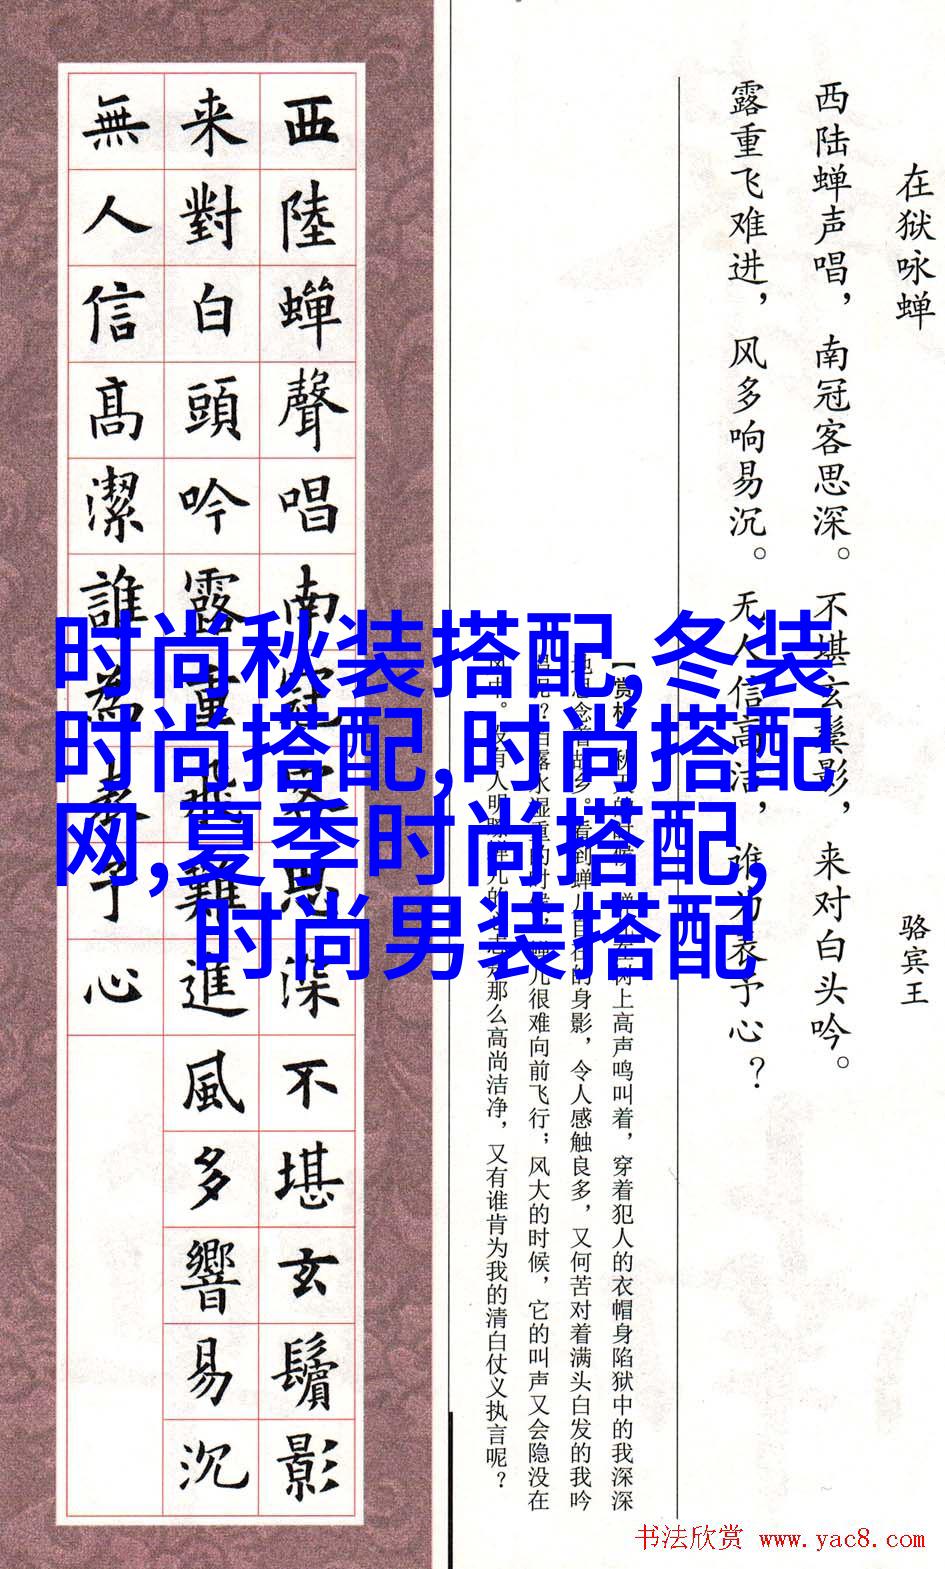 在狱咏蝉
骆宾王
西陆蝉声唱，南冠客思深。不堪玄鬓影，来对白头吟。
露重飞难进，风多响易沉。无人信高洁，谁为表予心？
【赏析】秋天的时候，蝉儿在树上高声鸣叫着，穿着犯人的衣帽身陷狱中的我深深
地思念着故乡。看到蝉儿自在的身影，令人感触良多，又何苦对着满头白发的我吟
唱呢？白露水湿重的时候，蝉儿很难向前飞行；风大的时候，它的叫声又会隐没在
风中。没有人明瞭蝉儿的心志那么高尚洁净，又有谁肯为我的清白仗义执言呢？
西陸蟬聲唱南冠客思深不堪玄鬢影
来對白頭吟露重飛難進風多響易沉
無人信高潔誰為表予心
时尚秋装搭配,冬装
时尚搭配,时尚搭配
网,夏季时尚搭配,
时尚男装搭配
书法欣赏 www.yac8.com